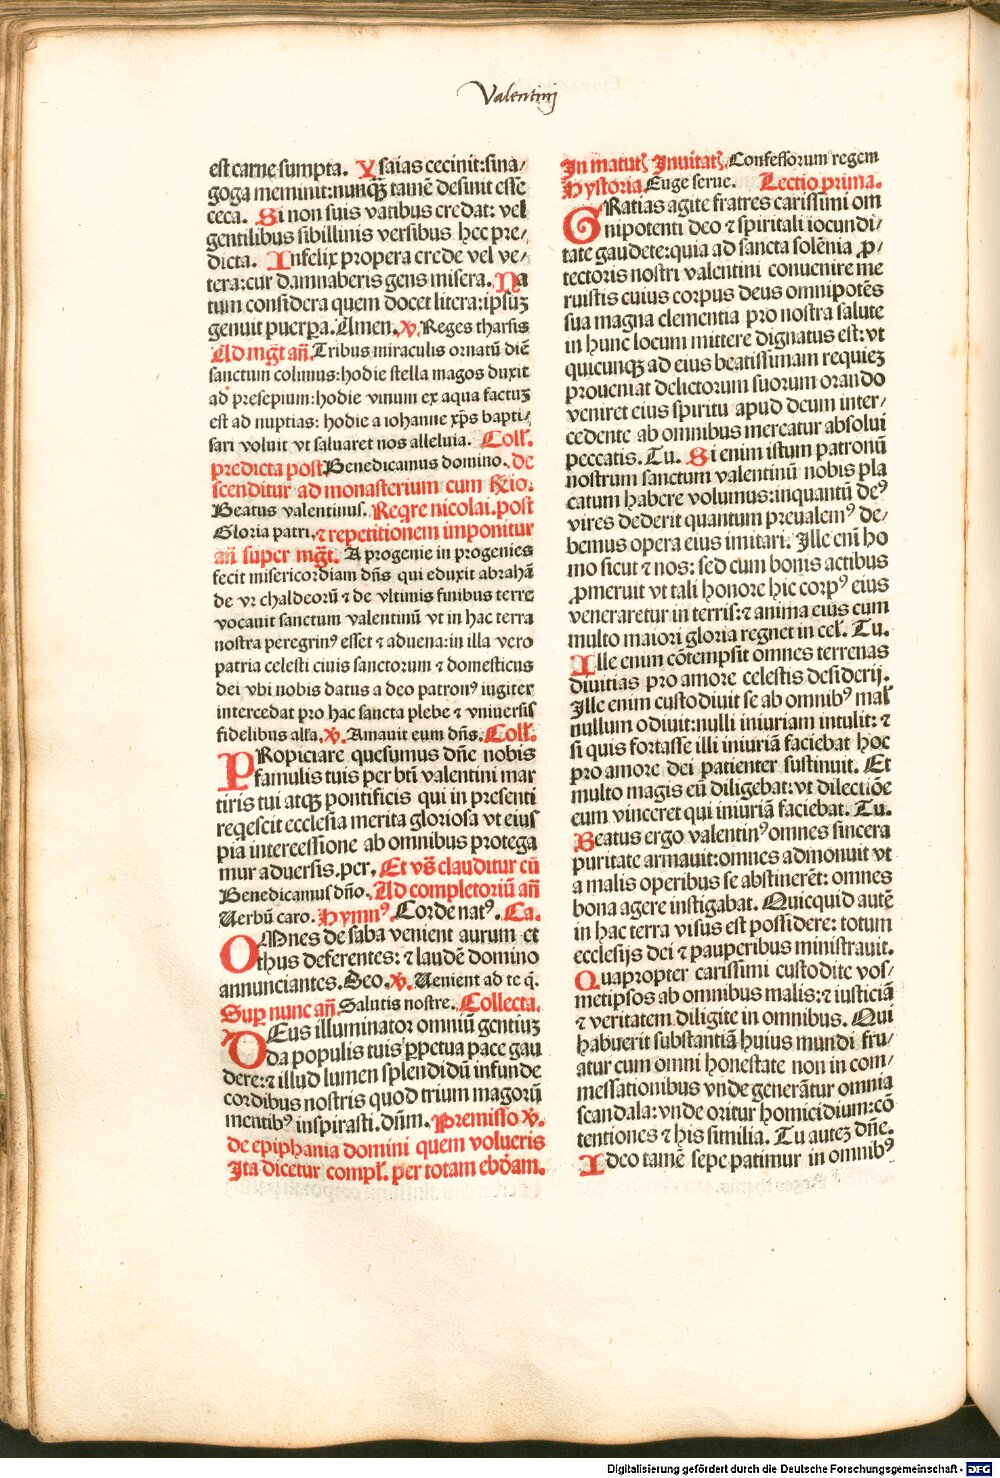 Valentinj
est carne sumpta. Ysaias cecinit:sina/
goga meminit:nunqꝫ tamē desinit esse
ceca. Si non suis vatibus credat: vel
gentilibus sibillinis versibus hec pre/
dicta. Infelix propera crede vel ve/
tera:cur damnaberis gens misera. Na
tum considera quem docet litera:ipsuꝫ
genuit puerꝑa. Amen. ꝟ. Reges tharsis
Ad mgt̄ an̄. Tribus miraculis ornatū diē
sanctum colimus:hodie stella magos duxit
ad presepium:hodie vinum ex aqua factuꝫ
est ad nuptias: hodie a iohanne xp̄s bapti/
sari voluit vt saluaret nos alleluia. Coll'.
predicta post Benedicamus domino. de
scenditur ad monasterium cum R̄io.
Beatus valentinus. Reqre nicolai. post
Gloria patri. ⁊ repetitionem imponitur
an̄ super mḡt. A progenie in progenies
fecit misericordiam dn̄s qui eduxit abrahā
de vr chaldeorū ⁊ de vltimis finibus terre
vocauit sanctum valentinū vt in hac terra
nostra peregrinꝰ esset ⁊ aduena:in illa vero
patria celesti ciuis sanctorum ⁊ domesticus
dei vbi nobis datus a deo patronꝰ iugiter
intercedat pro hac sancta plebe ⁊ vniuersis
fidelibus alla. ꝟ. Amauit eum dn̄s. Coll'.
PRopiciare quesumus dn̄e nobis
famulis tuis per bt̄i valentini mar
tiris tui atqꝫ pontificis qui in presenti
reqescit ecclesia merita gloriosa vt eius
pia intercessione ab omnibus protega
mur aduersis. per. Et vs̄ clauditur cū
Benedicamus dn̄o. Ad completoriū an̄
Uerbū caro. Hymnꝰ. Corde natꝰ. Ca.
OMnes de saba venient aurum et
thus deferentes: ⁊ laudē domino
annunciantes. Deo. ꝟ. Uenient ad te q̄.
Suꝑ nunc an̄ Salutis nostre. Collecta.
DEus illuminator omniū gentiuꝫ
da populis tuis ꝑpetua pace gau
dere:⁊ illud lumen splendidū infunde
cordibus nostris quod trium magorū
mentibꝰ inspirasti. dn̄m. Premisso ꝟ.
de epiphania domini quem volueris
Ita dicetur compl'. per totam ebdam.
In matut' Inuitat' Confessorum regem
Hystoria Euge serue. Lectio prima.
GRatias agite fratres carissimi om
nipotenti deo ⁊ spiritali iocundi/
tate gaudete:quia ad sancta solēnia ꝓ/
tectoris nostri valentini conuenire me
ruistis cuius corpus deus omnipotēs
sua magna clementia pro nostra salute
in hunc locum mittere dignatus est: vt
quicunqꝫ ad eius beatissimam requieꝫ
proueniat delictorum suorum orando
veniret eius spiritu apud deum inter/
cedente ab omnibus mereatur absolui
peccatis. Tu. Si enim istum patronū
nostrum sanctum valentinū nobis pla
catum habere volumus:inquantū deꝰ
vires dederit quantum preualemꝰ de/
bemus opera eius imitari. Ille eni̅ ho
mo sicut ⁊ nos: sed cum bonis actibus
ꝓmeruit vt tali honore hic corpꝰ eius
veneraretur in terris:⁊ anima eius cum
multo maiori gloria regnet in cel'. Tu.
Ille enim cōtempsit omnes terrenas
diuitias pro amore celestis desiderij.
Ille enim custodiuit se ab omnibꝰ mal'
nullum odiuit:nulli iniuriam intulit: ⁊
si quis fortasse illi iniuriā faciebat hoc
pro amore dei patienter sustinuit. Et
multo magis eū diligebat:vt dilectiōe
eum vinceret qui iniuriā faciebat. Tu.
Beatus ergo valentinꝰ omnes sincera
puritate armauit:omnes admonuit vt
a malis operibus se abstinerēt: omnes
bona agere instigabat. Quicquid autē
in hac terra visus est possidere: totum
ecclesijs dei ⁊ pauperibus ministrauit.
Quapropter carissimi custodite vos/
metipsos ab omnibus malis:⁊ iusticiā
⁊ veritatem diligite in omnibus. Qui
habuerit substantiā huius mundi fru/
atur cum omni honestate non in com/
messationibus vnde generātur omnia
scandala:vnde oritur homicidium:cō
tentiones ⁊ his similia. Tu auteꝫ dn̄e.
Ideo tamē sepe patimur in omnibꝰ
Digitalisierung gefördert durch die Deutsche Forschungsgemeinschaft - DFG